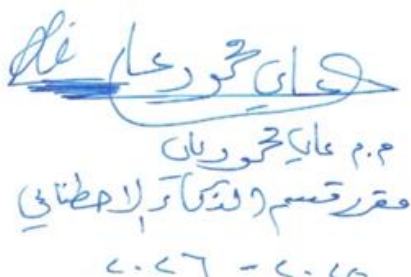 علي محمود
م.م علي محمود
مقرر قسم الذكاء الاصطناعي
٢٠٢٥ - ٢٠٢٦